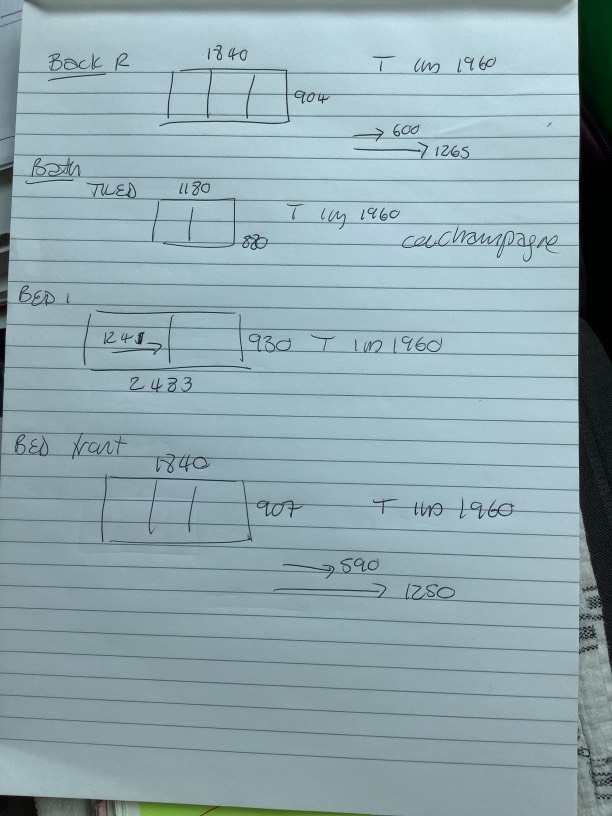 Back R
1840
T in 1960
904
→ 600
→ 1265
Bath
TILED 1180
T in 1960
880
champagne
BED 1
1241 →
930 T in 1960
2483
BED front
1840
907
T in 1960
→ 590
→ 1250